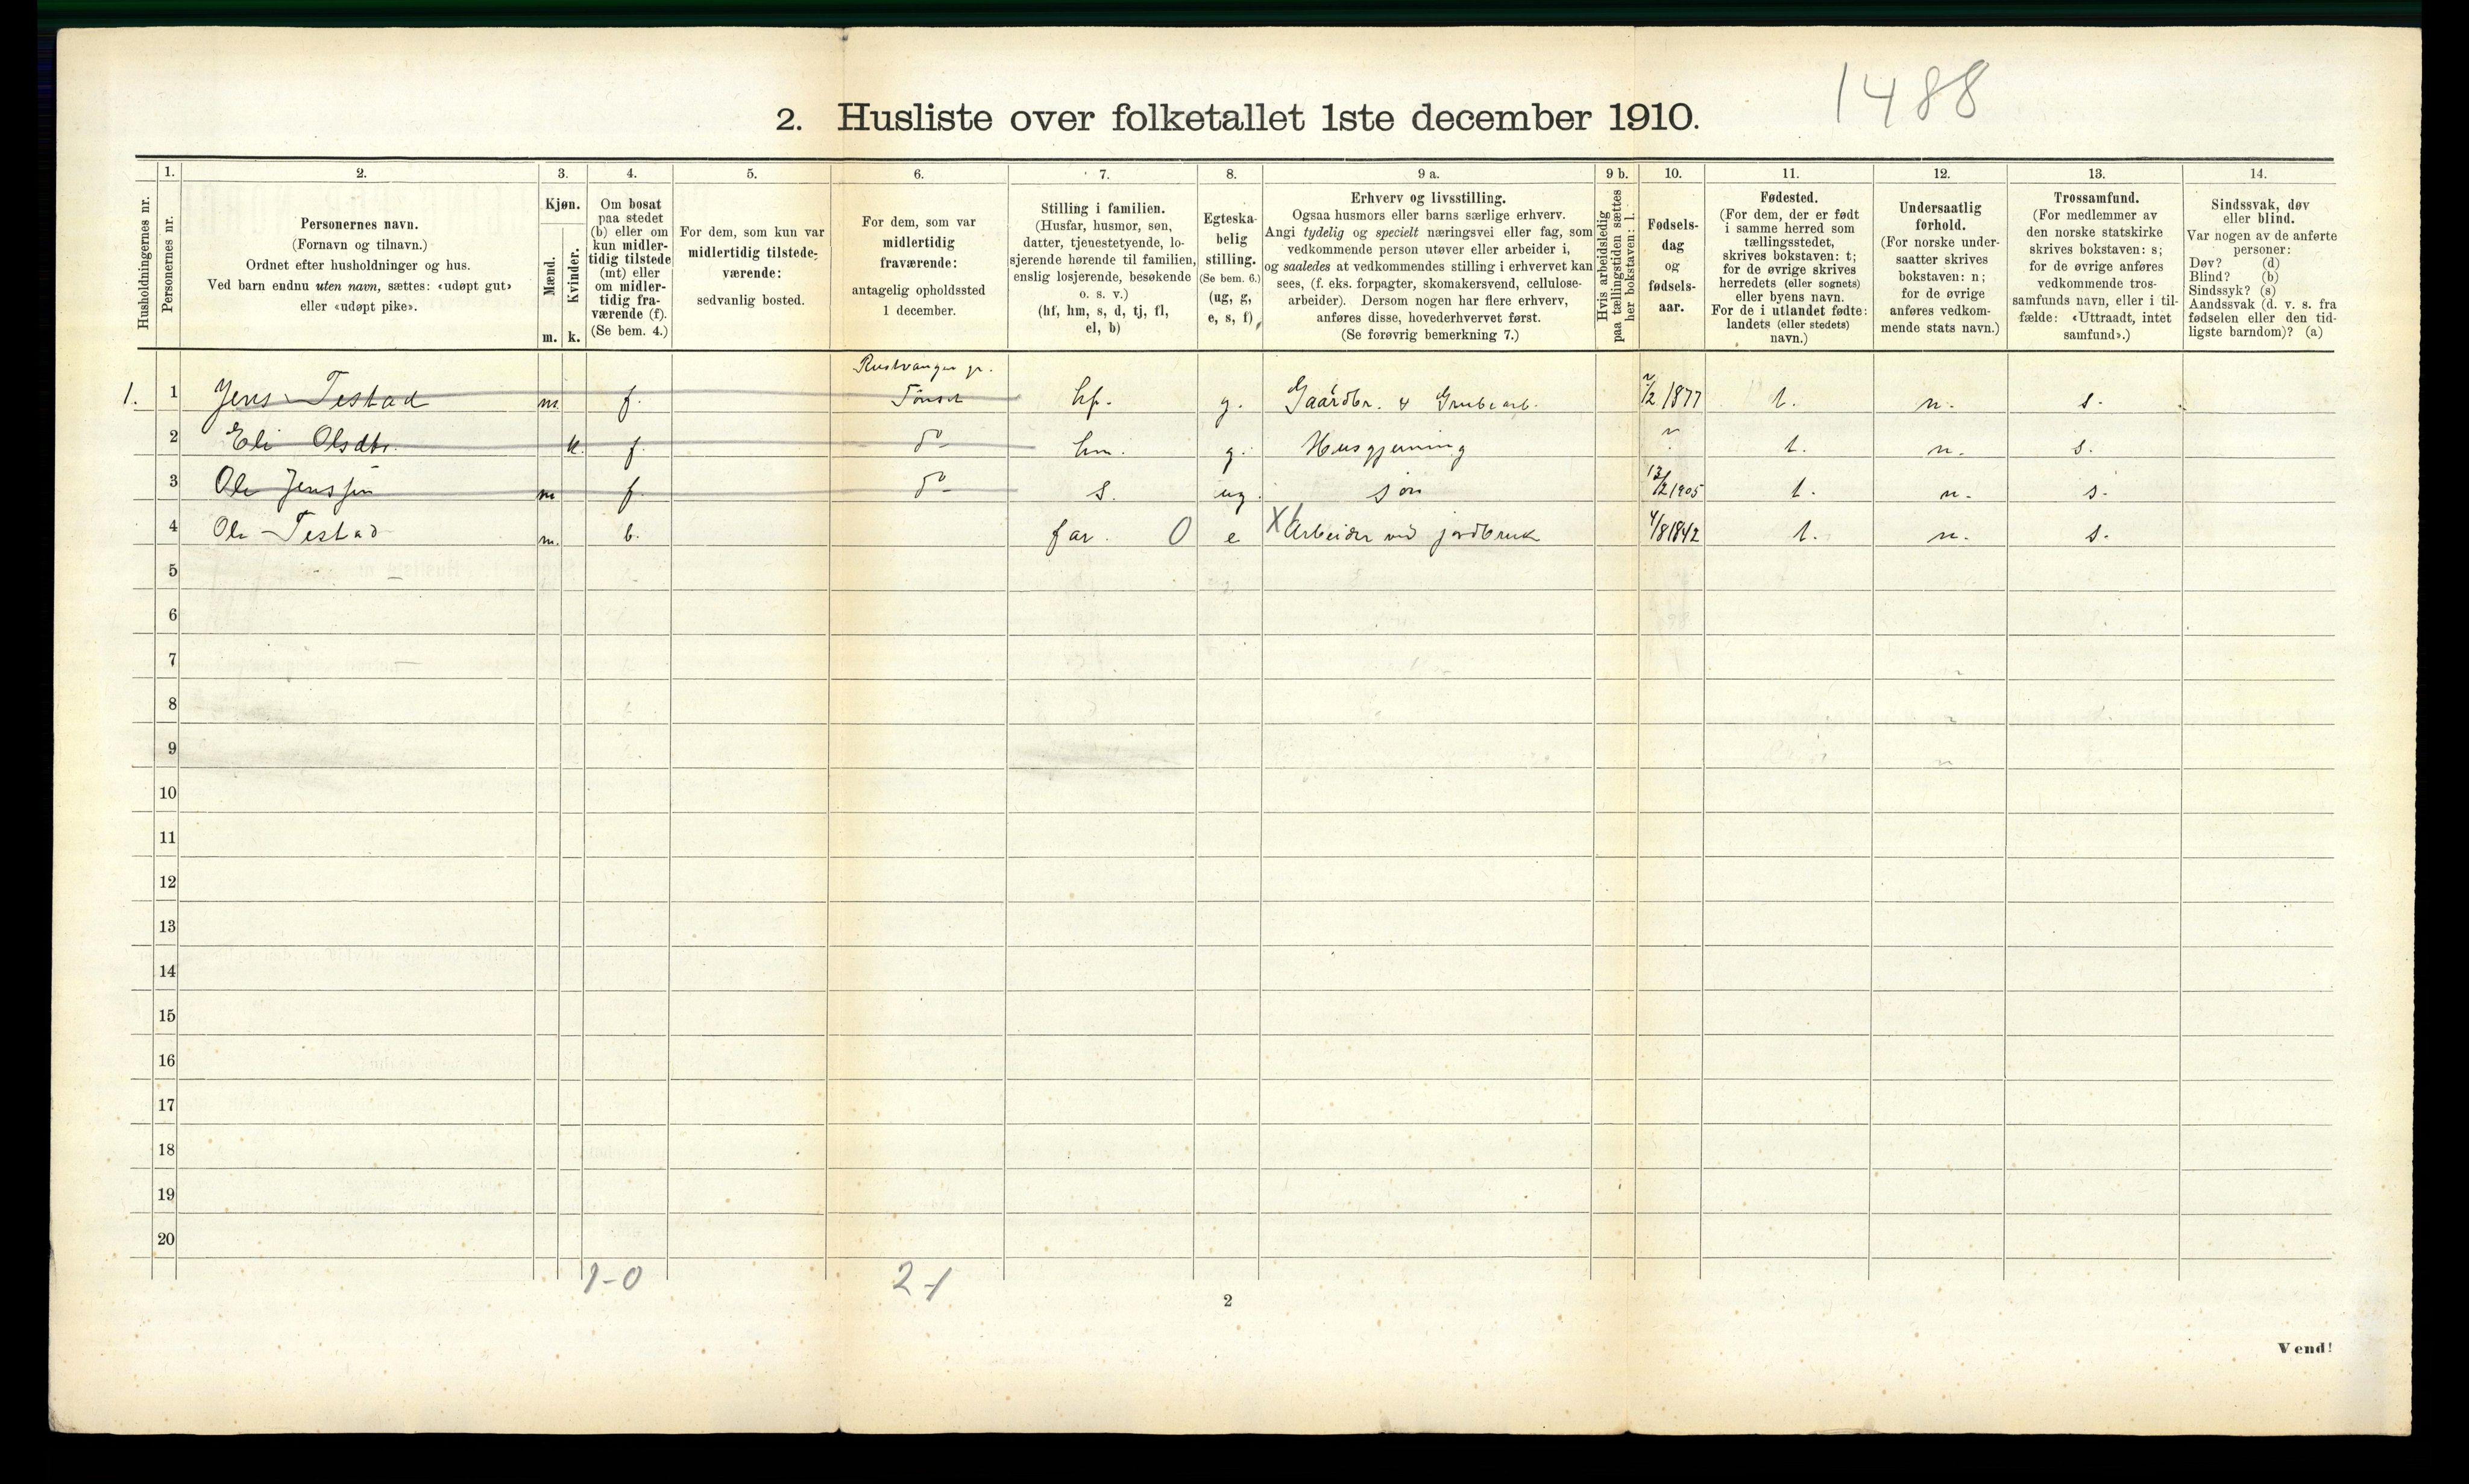 1488
2. Husliste over folketallet 1ste december 1910.
Husholdningernes nr.
1.
Personernes nr.
2.
Personernes navn.
(Fornavn og tilnavn.)
Ordnet efter husholdninger og hus.
Ved barn endnu uten navn, sættes: «udøpt gut»
eller «udøpt pike».
3.
Kjøn.
Mænd.
Kvinder.
m. k.
4.
Om bosat
paa stedet
(b) eller om
kun midler-
tidig tilstede
(mt) eller
om midler-
tidig fra-
værende (f).
(Se bem. 4.)
5.
For dem, som kun var
midlertidig tilstede-
værende:
sedvanlig bosted.
6.
For dem, som var
midlertidig
fraværende:
antagelig opholdssted
1 december.
7.
Stilling i familien.
(Husfar, husmor, søn,
datter, tjenestetyende, lo-
sjerende hørende til familien,
enslig losjerende, besøkende
o. s. v.)
(hf, hm, s, d, tj, fl,
el, b)
8.
Egteska-
belig
stilling.
(Se bem. 6.)
(ug, g,
e, s, f)
9 a.
Erhverv og livsstilling.
Ogsaa husmors eller barns særlige erhverv.
Angi tydelig og specielt næringsvei eller fag, som
vedkommende person utøver eller arbeider i,
og saaledes at vedkommendes stilling i erhvervet kan
sees, (f. eks. forpagter, skomakersvend, cellulose-
arbeider). Dersom nogen har flere erhverv,
anføres disse, hovederhvervet først.
(Se forøvrig bemerkning 7.)
9 b.
Hvis arbeidsledig
paa tællingstiden sættes
her bokstaven: l.
10.
Fødsels-
dag
og
fødsels-
aar.
11.
Fødested.
(For dem, der er født
i samme herred som
tællingsstedet,
skrives bokstaven: t;
for de øvrige skrives
herredets (eller sognets)
eller byens navn.
For de i utlandet fødte:
landets (eller stedets)
navn.)
12.
Undersaatlig
forhold.
(For norske under-
saatter skrives
bokstaven: n;
for de øvrige
anføres vedkom-
mende stats navn.)
13.
Trossamfund.
(For medlemmer av
den norske statskirke
skrives bokstaven: s;
for de øvrige anføres
vedkommende tros-
samfunds navn, eller i til-
fælde: «Uttraadt, intet
samfund».)
14.
Sindssvak, døv
eller blind.
Var nogen av de anførte
personer:
Døv? (d)
Blind? (b)
Sindssyk? (s)
Aandssvak (d. v. s. fra
fødselen eller den tid-
ligste barndom)? (a)
1. 1 Jens Testad m. f. Tønset hf. g. Gaardbr. & Grubearb. /2 1877 t. n. s.
2 Eli Olsdtr. k. f. do hm. g. Husgjerning t. n. s.
3 Ole Jenssøn m f. do s. ug. søn 13/2 1905 t. n. s.
4 Ole Testad m. b. far. 0 e X Arbeider ved jordbruk 4/8 1842 t. n. s.
5
6
7
8
9
10
11
12
13
14
15
16
17
18
19
20
1-0 2-1
2
Vend!